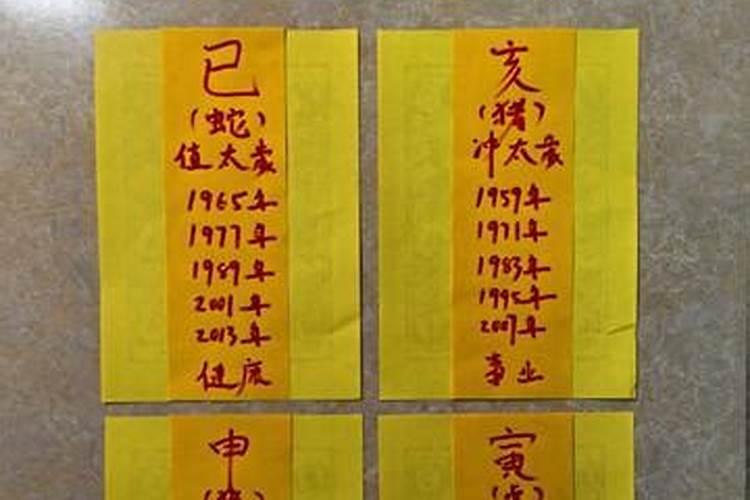 巳
(蛇)
值太歲
1965年
1977年
1989年
2001年
2013年
健康
亥
(猪)
冲太歲
1959年
1971年
1983年
1995年
2007年
事业
申
寅